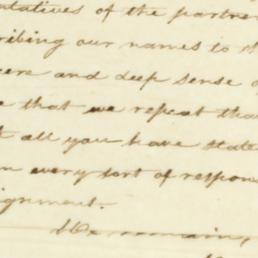 ntatives of the partner
ribing our names to th
cere and deep sense o
e that we repeat that
t all you have state
n every sort of respon
ignment.
We remain,